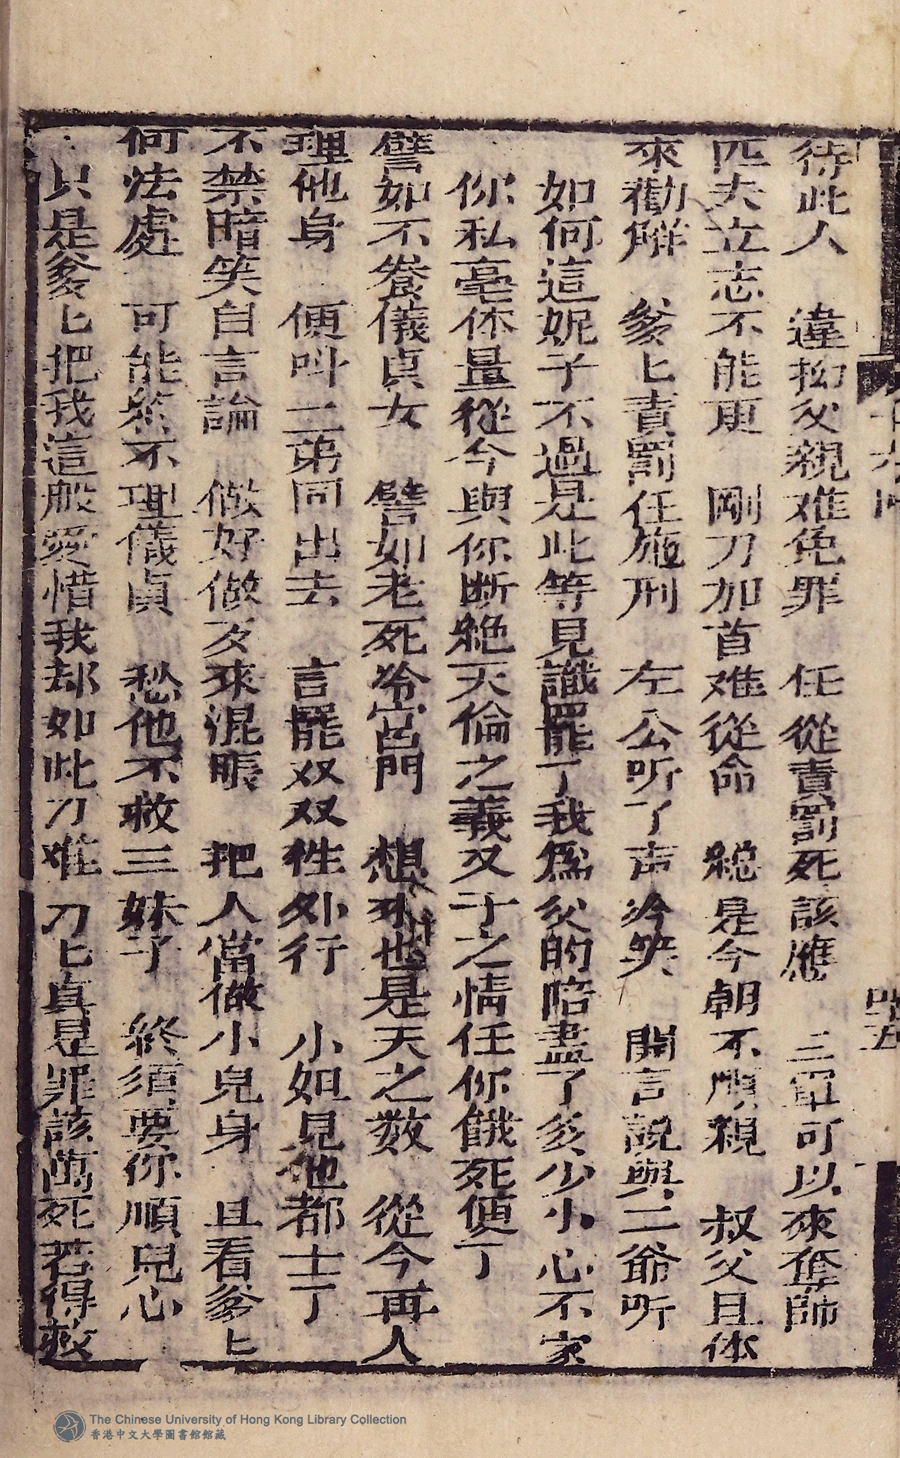 待此人　違拗父親难免罪　任從責罰死該應　三軍可以來奪帥
匹夫立志不能更　剛刀加首难從命　総是今朝不順親　叔父且体
來勸解　爹匕責罰任施刑　左公听了声冷笑　開言説與二爺听
如何這妮子不過是此等見識罷了我爲父的陪盡了多少小心不家
你私毫体量從今與你断絶天倫之義父子之情任你餓死便了
譬如不養儀貞女　譬如老死冷宮門　想來也是天之数　從今再人
理他身　便叫二弟同出去　言罷双双性外行　小如見他都士了
不禁暗笑自言論　做好做歹來混賬　把人當做小兒身　且看爹匕
何法處　可能終不理儀貞　愁他不救三妹子　終須要你順兒心
只是爹匕把我這般愛惜我却如此刀难刀匕真是罪該萬死若得救
十六回
四五
The Chinese University of Hong Kong Library Collection
香港中文大學圖書館館藏